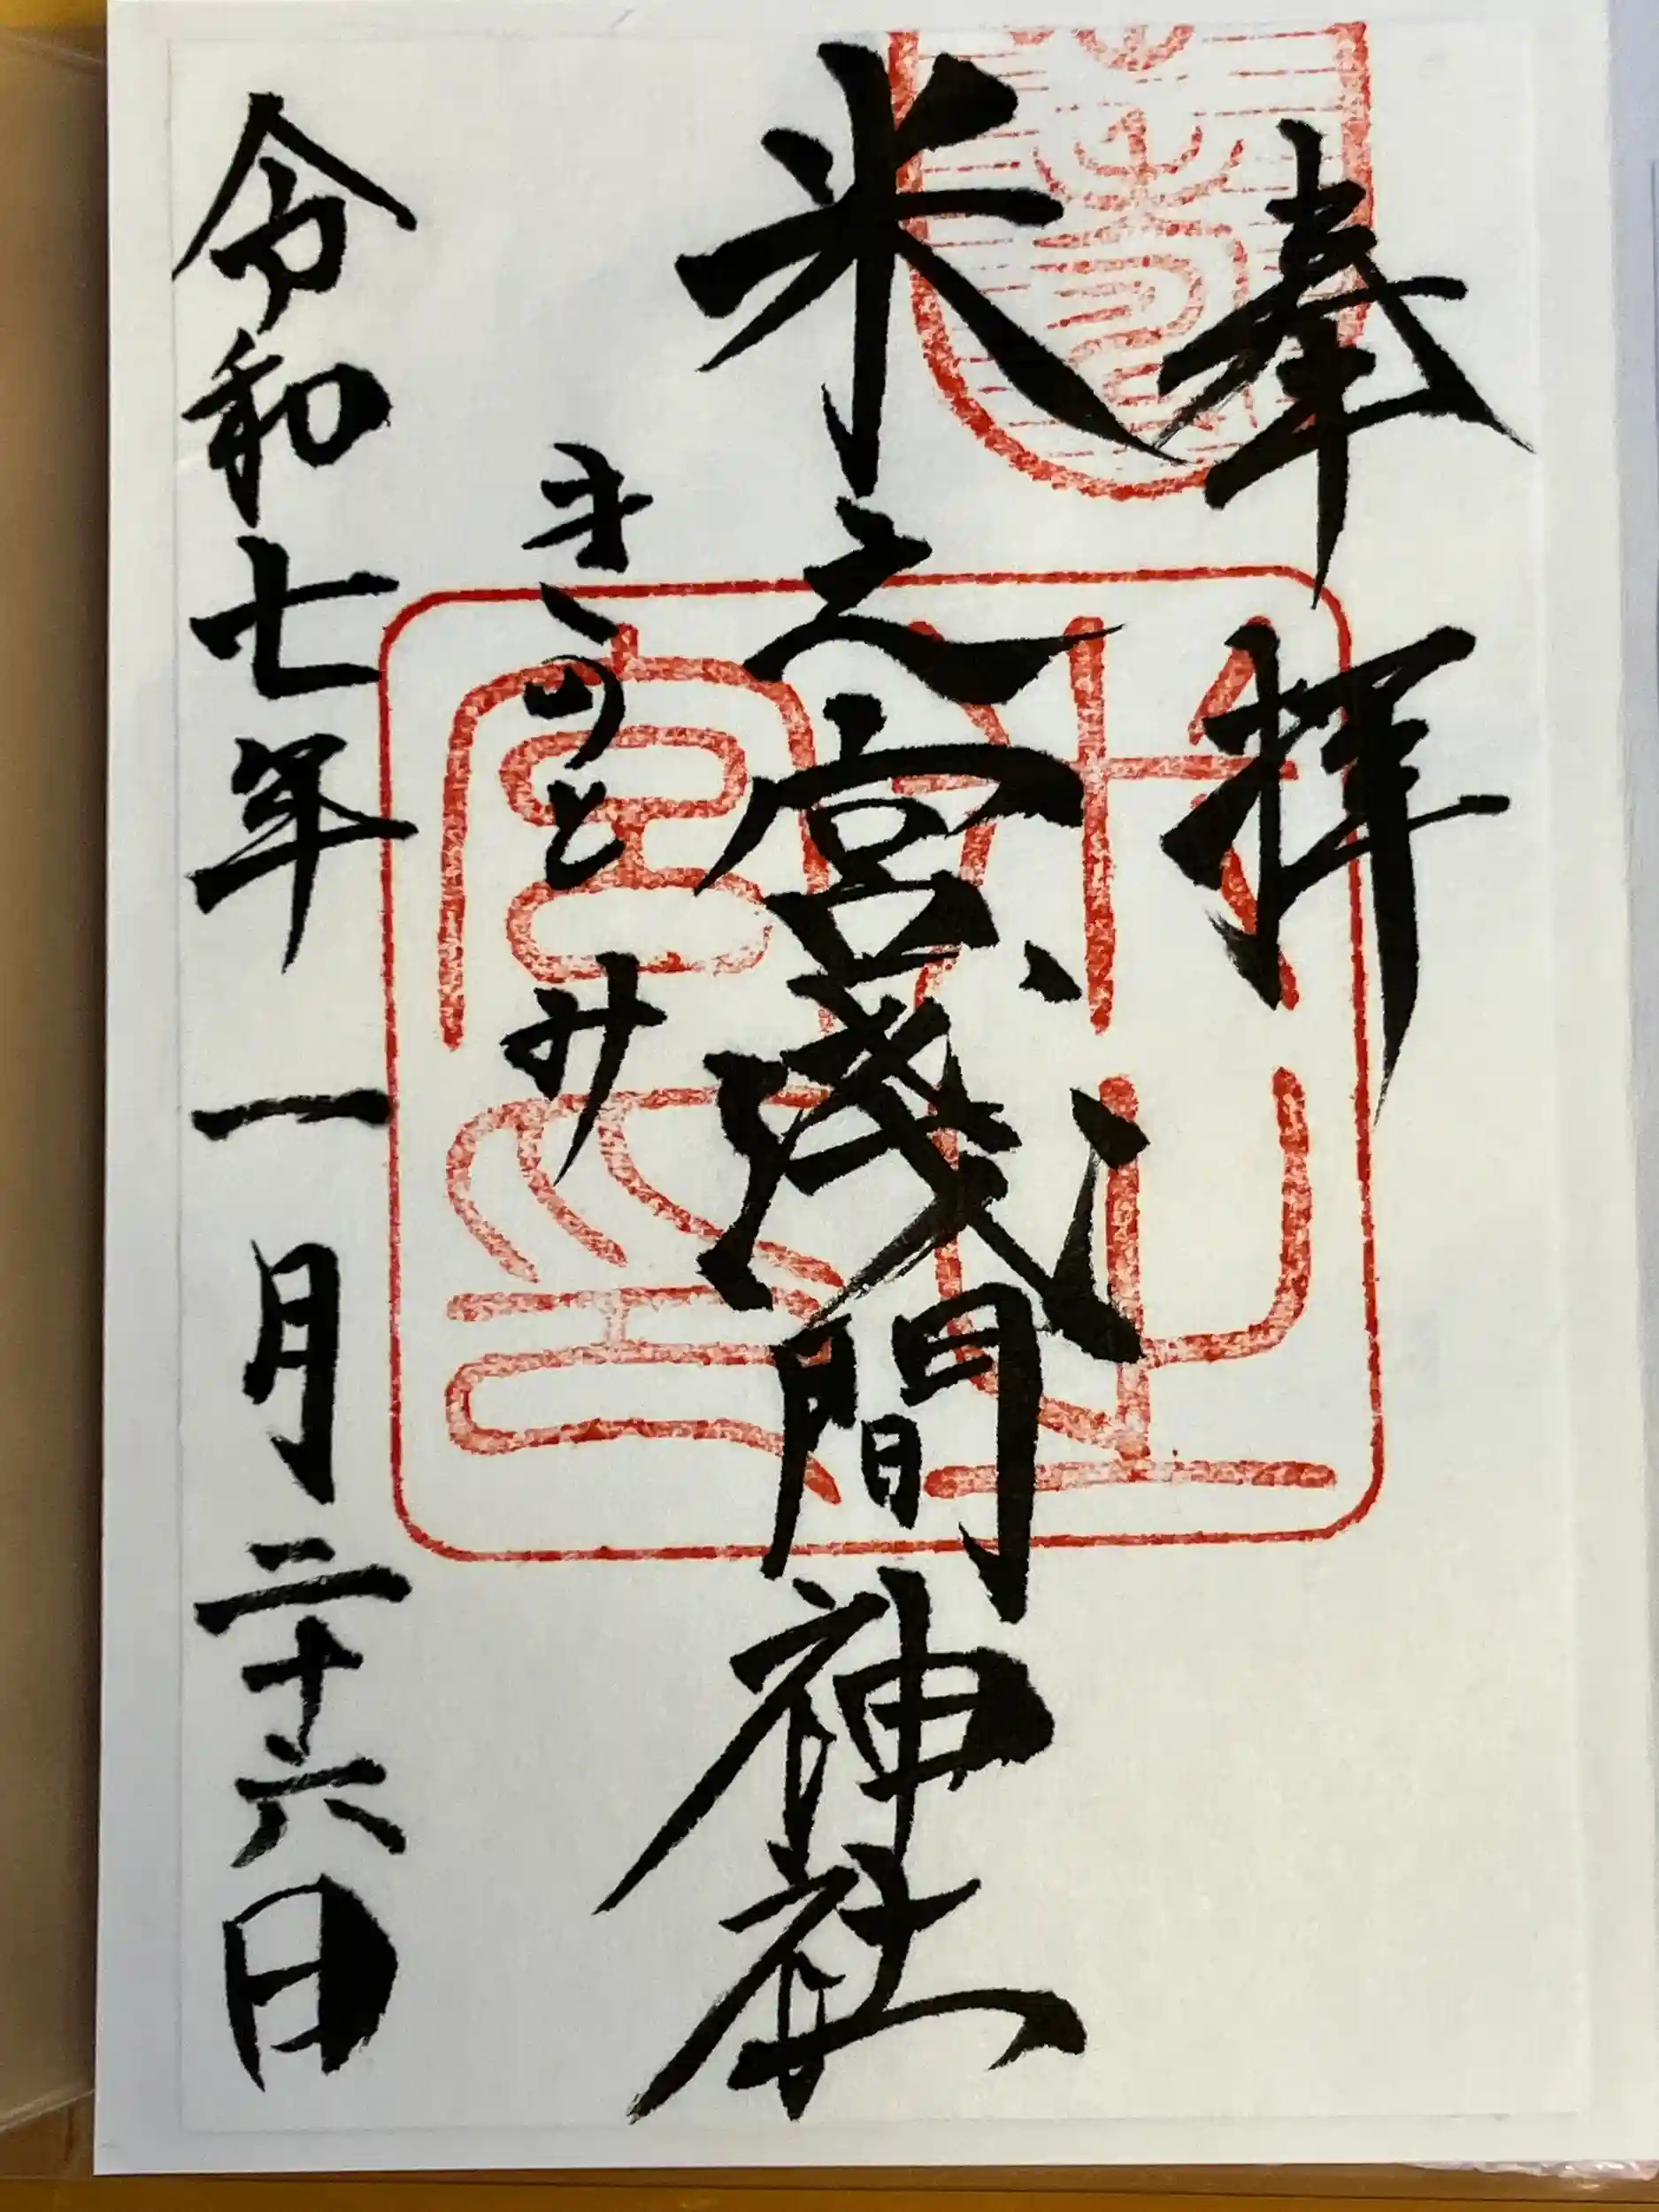 奉拝
米之宮浅間神社
きのと み
令和七年一月二十六日